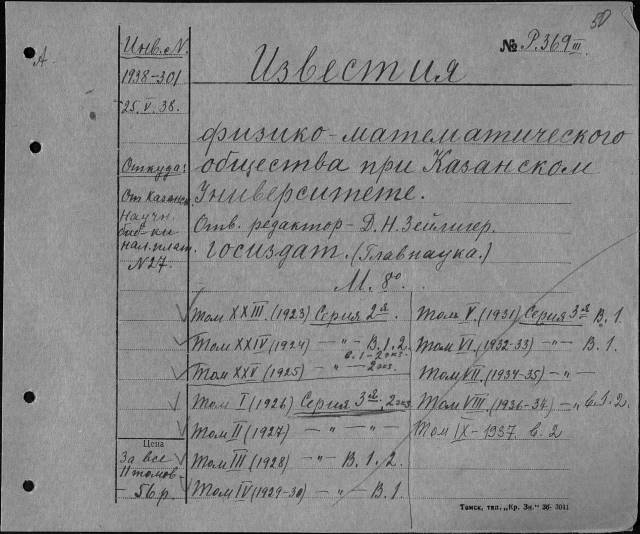 50
№ Р.369 III
А
Инв. N.
1938-301
25.V.38.
Откуда:
От Казанск
научн.
биб-ки
нал. плат.
N27.
Известия
физико-математического
общества при Казанском
Университете.
Отв. редактор - Д.Н. Зейлигер.
Госиздат. (Главнаука.)
М. 8°
Том XXIII. (1923) Серия 2я.
Том XXIV (1924) -"- В. 1. 2.
в. 1-2 экз.
Том XXV (1925) -"- 2 экз.
Том I (1926) Серия 3я, 2 экз
Том II (1927) -"- -"-
Том III (1928) -"- В. 1. 2.
Том IV (1929-30) -"- В. 1.
Том V. (1931) Серия 3я В. 1.
Том VI. (1932-33) -"- В. 1.
Том VII. (1934-35) -"-
Том VIII. (1936-37) -"- в. 1. 2.
Том IX - 1937. в. 2
Цена
За все
11 томов -
56 р.
Томск, тип. „Кр. Зн." 36- 3041